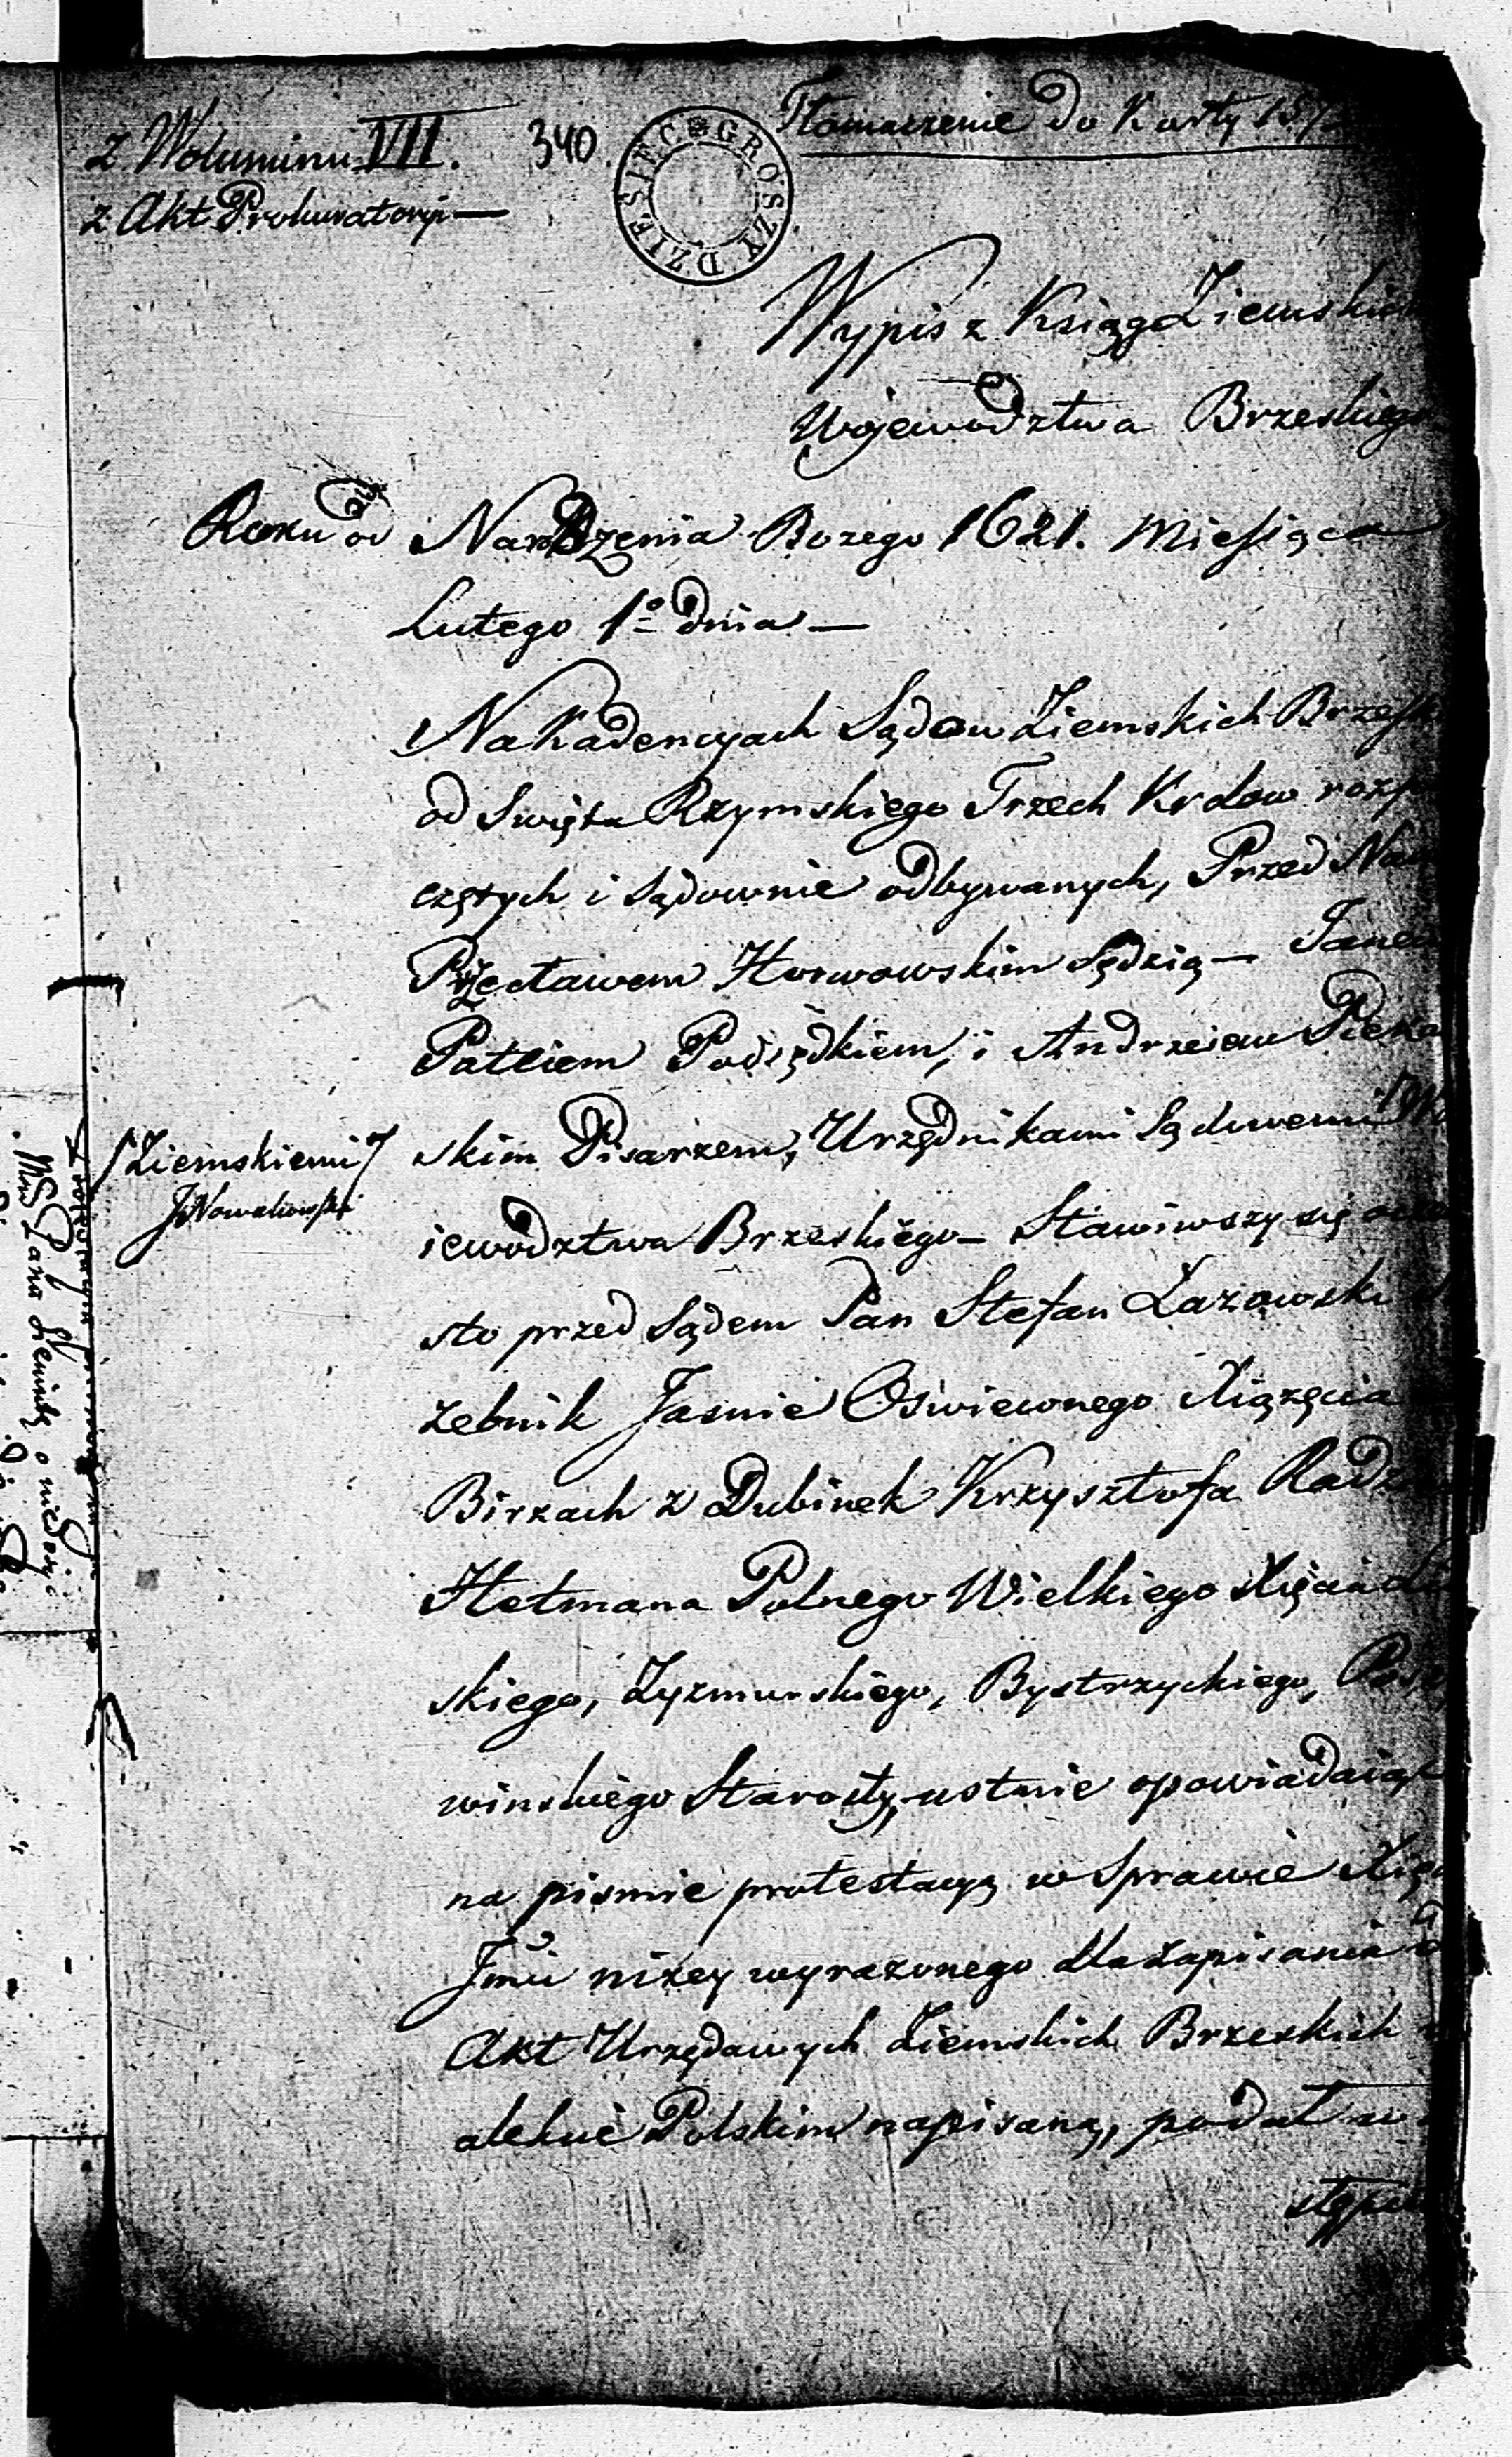 z Woluminu VII.
z Akt Prokuratoryi —
340.
DZIESIĘĆ GROSZY
Tłomaczenie do Karty
Wypis z Ksiąg Ziemskich
Województwa Brzeskiego
Roku od Narodzenia Bozego 1621. Miesiąca
Lutego 1º dnia —
Na Kadencyach Sądow Ziemskich Brzesk
od Swięta Rzymskiego Trzech Krolow rozpo
czętych i sądownie odbywanych, Przed Nami
Przecławem Horwowskim Sędzią — Janem
Pateiem Podsędkiem, i Andrzeiem Pieka
skim Pisarzem, Urzędnikami Sądowemi Wo
/Ziemskiemi/
JNowakowski
iewodztwa Brzeskiego — Stawiwszy się oczewi
sto przed Sądem Pan Stefan Łazowski Słu
żebnik Jasnie Oswieconego Xiążęcia
Birzach z Dubinek Krzysztofa Radzi
Hetmana Polnego Wielkiego Xięcia Li
skiego, Zyzmurskiego, Bystrzyckiego,
winskiego Starosty, ustnie opowiadaiąc
na pismie protestacyą w Sprawie Xięc
Jmci nizey wyrazonego dla zapisania do
Akt Urzędowych Ziemskich Brzeskich
alekcie Polskim napisaną, podał w
stępu